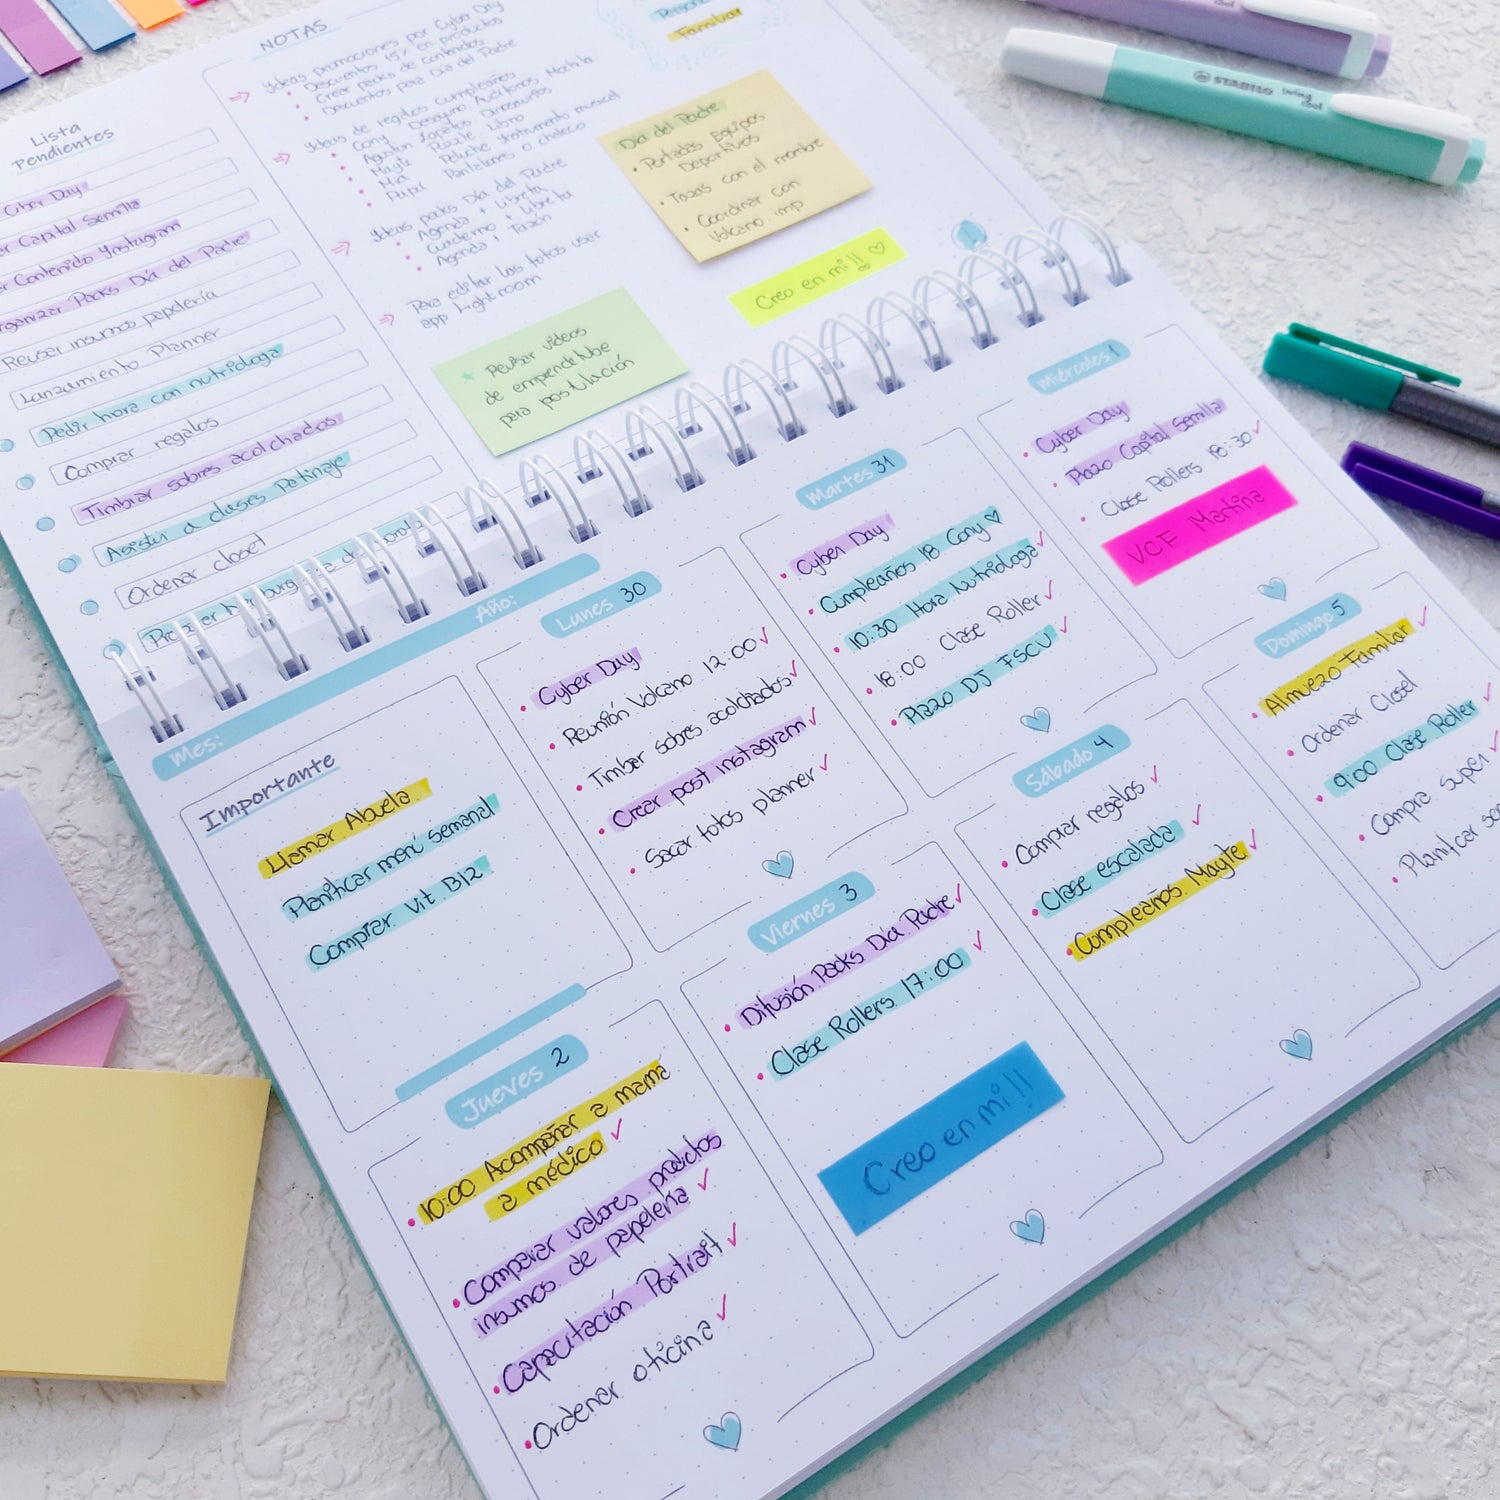 Lista
Pendientes
Cyber Day
Capital Semilla
Contenido Ynstagram
Packs Día del Padre
Revisar insumos papelería
Lanzamiento Planner
Pedir hora con nutrióloga
Comprar regalos
Timbrar sobres acolchados
Asistir a clases Patinaje
Ordenar closet
NOTAS
Ydeas promociones por Cyber Day
Descuentos 15% en productos
Crear packs de contenidos
Descuentos para Día del Padre
Ydeas de regalos cumpleaños
Cony Desayuno Audífonos Mochila
Agustín Zapatos Dinosaurios
Mayte Puzzle Libro
Mia Peluche Ynstrumento musical
Papá Pantalones o chaleco
Ydeas packs Día del Padre
Agenda + Libreta
Cuaderno + Libreta
Agenda + Tazón
Para editar las fotos usar
app Lightroom
Personal
Familiar
Día del Padre
Portadas Equipos
Deportivos
Tazas con el nombre
Coordinar con
Volcano.imp
Creo en mi!!
Revisar videos
de emprendetube
para postulación
STABILO swing cool
Mes:
Año:
Importante
Llamar Abuela
Planificar menú semanal
Comprar vit B12
Lunes 30
Cyber Day
Reunión Volcano 12:00
Timbrar sobres acolchados
Crear post instagram
Sacar fotos planner
Martes 31
Cyber Day
Cumpleaños 18 Cony
10:30 Hora Nutrióloga
18:00 Clase Roller
Plazo DJ FSCU
Miércoles 1
Cyber Day
Plazo Capital Semilla
Clase Rollers 18:30
VCF Martina
Jueves 2
10:00 Acompañar a mamá
a médico
Comparar valores productos
insumos de papelería
Capacitación Portrait
Ordenar oficina
Viernes 3
Difusión Packs Día Padre
Clase Rollers 17:00
Creo en mi!!
Sábado 4
Comprar regalos
Clase escalada
Cumpleaños Mayte
Domingo 5
Almuerzo Familiar
Ordenar Closet
9:00 Clase Roller
Compra super
Planificar